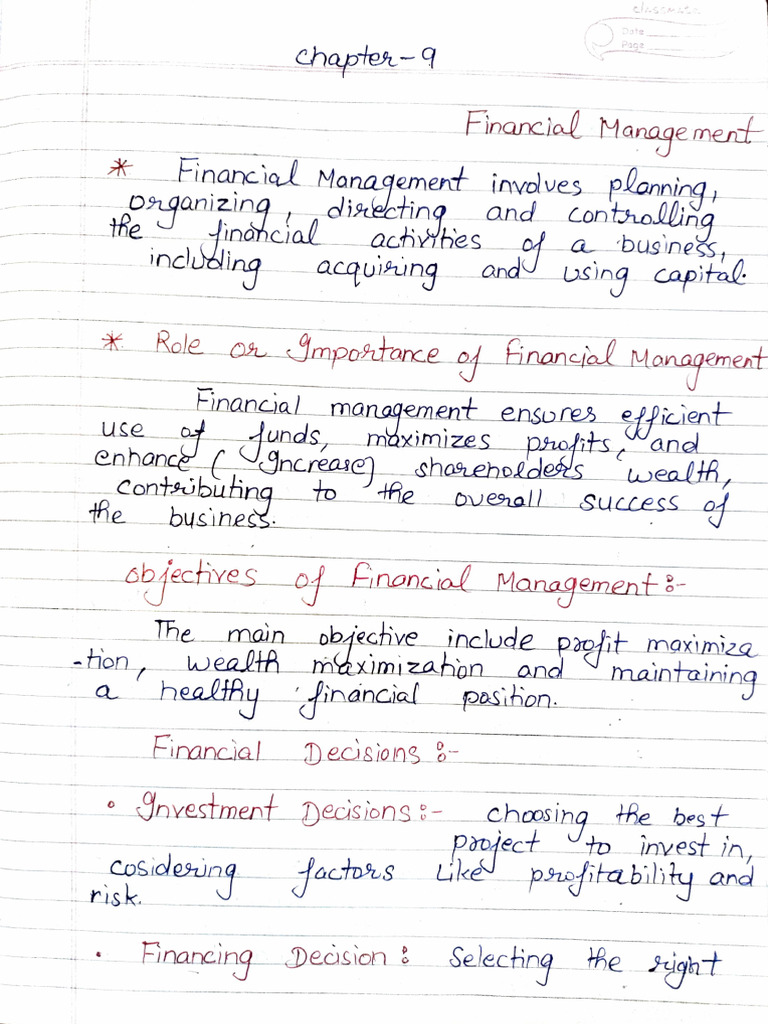 classmate
Date
Page
Chapter-9
Financial Management
* Financial Management involves planning,
organizing, directing and controlling
the financial activities of a business,
including acquiring and using capital.
* Role or Importance of Financial Management
Financial management ensures efficient
use of funds, maximizes profits, and
enhance (Increase) shareholders wealth,
contributing to the overall success of
the business.
Objectives of Financial Management:-
The main objective include profit maximiza
-tion, wealth maximization and maintaining
a healthy financial position.
Financial Decisions:-
• Investment Decisions:- choosing the best
project to invest in,
cosidering factors like profitability and
risk.
• Financing Decision: Selecting the right